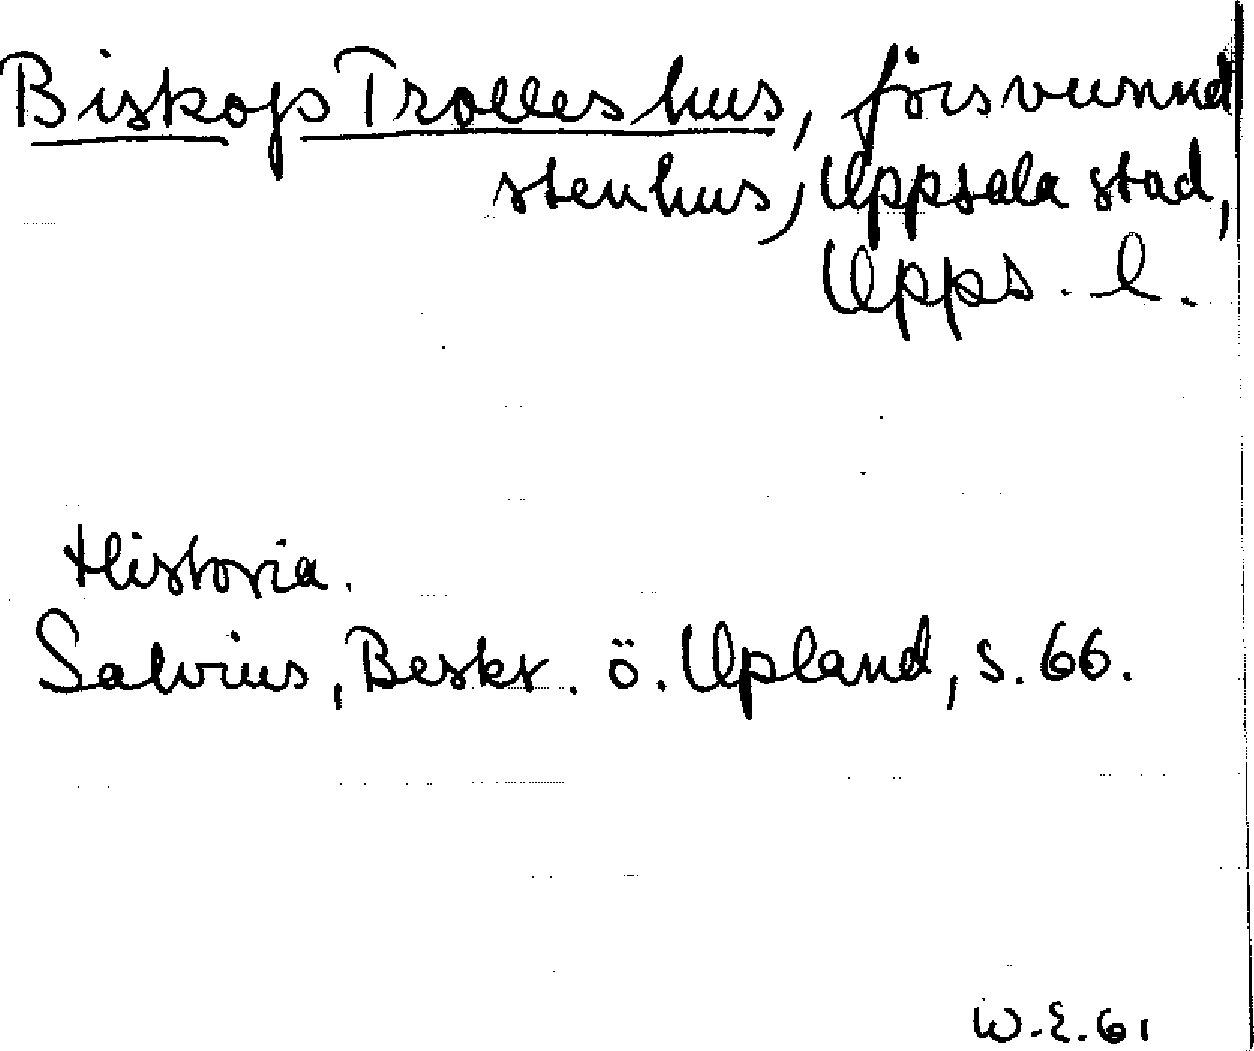 Biskop Trolles hus, försvunnet
stenhus, Uppsala stad,
Upps. l.
Historia.
Salvius, Beskr. ö. Upland, s. 66.
W.E. 61